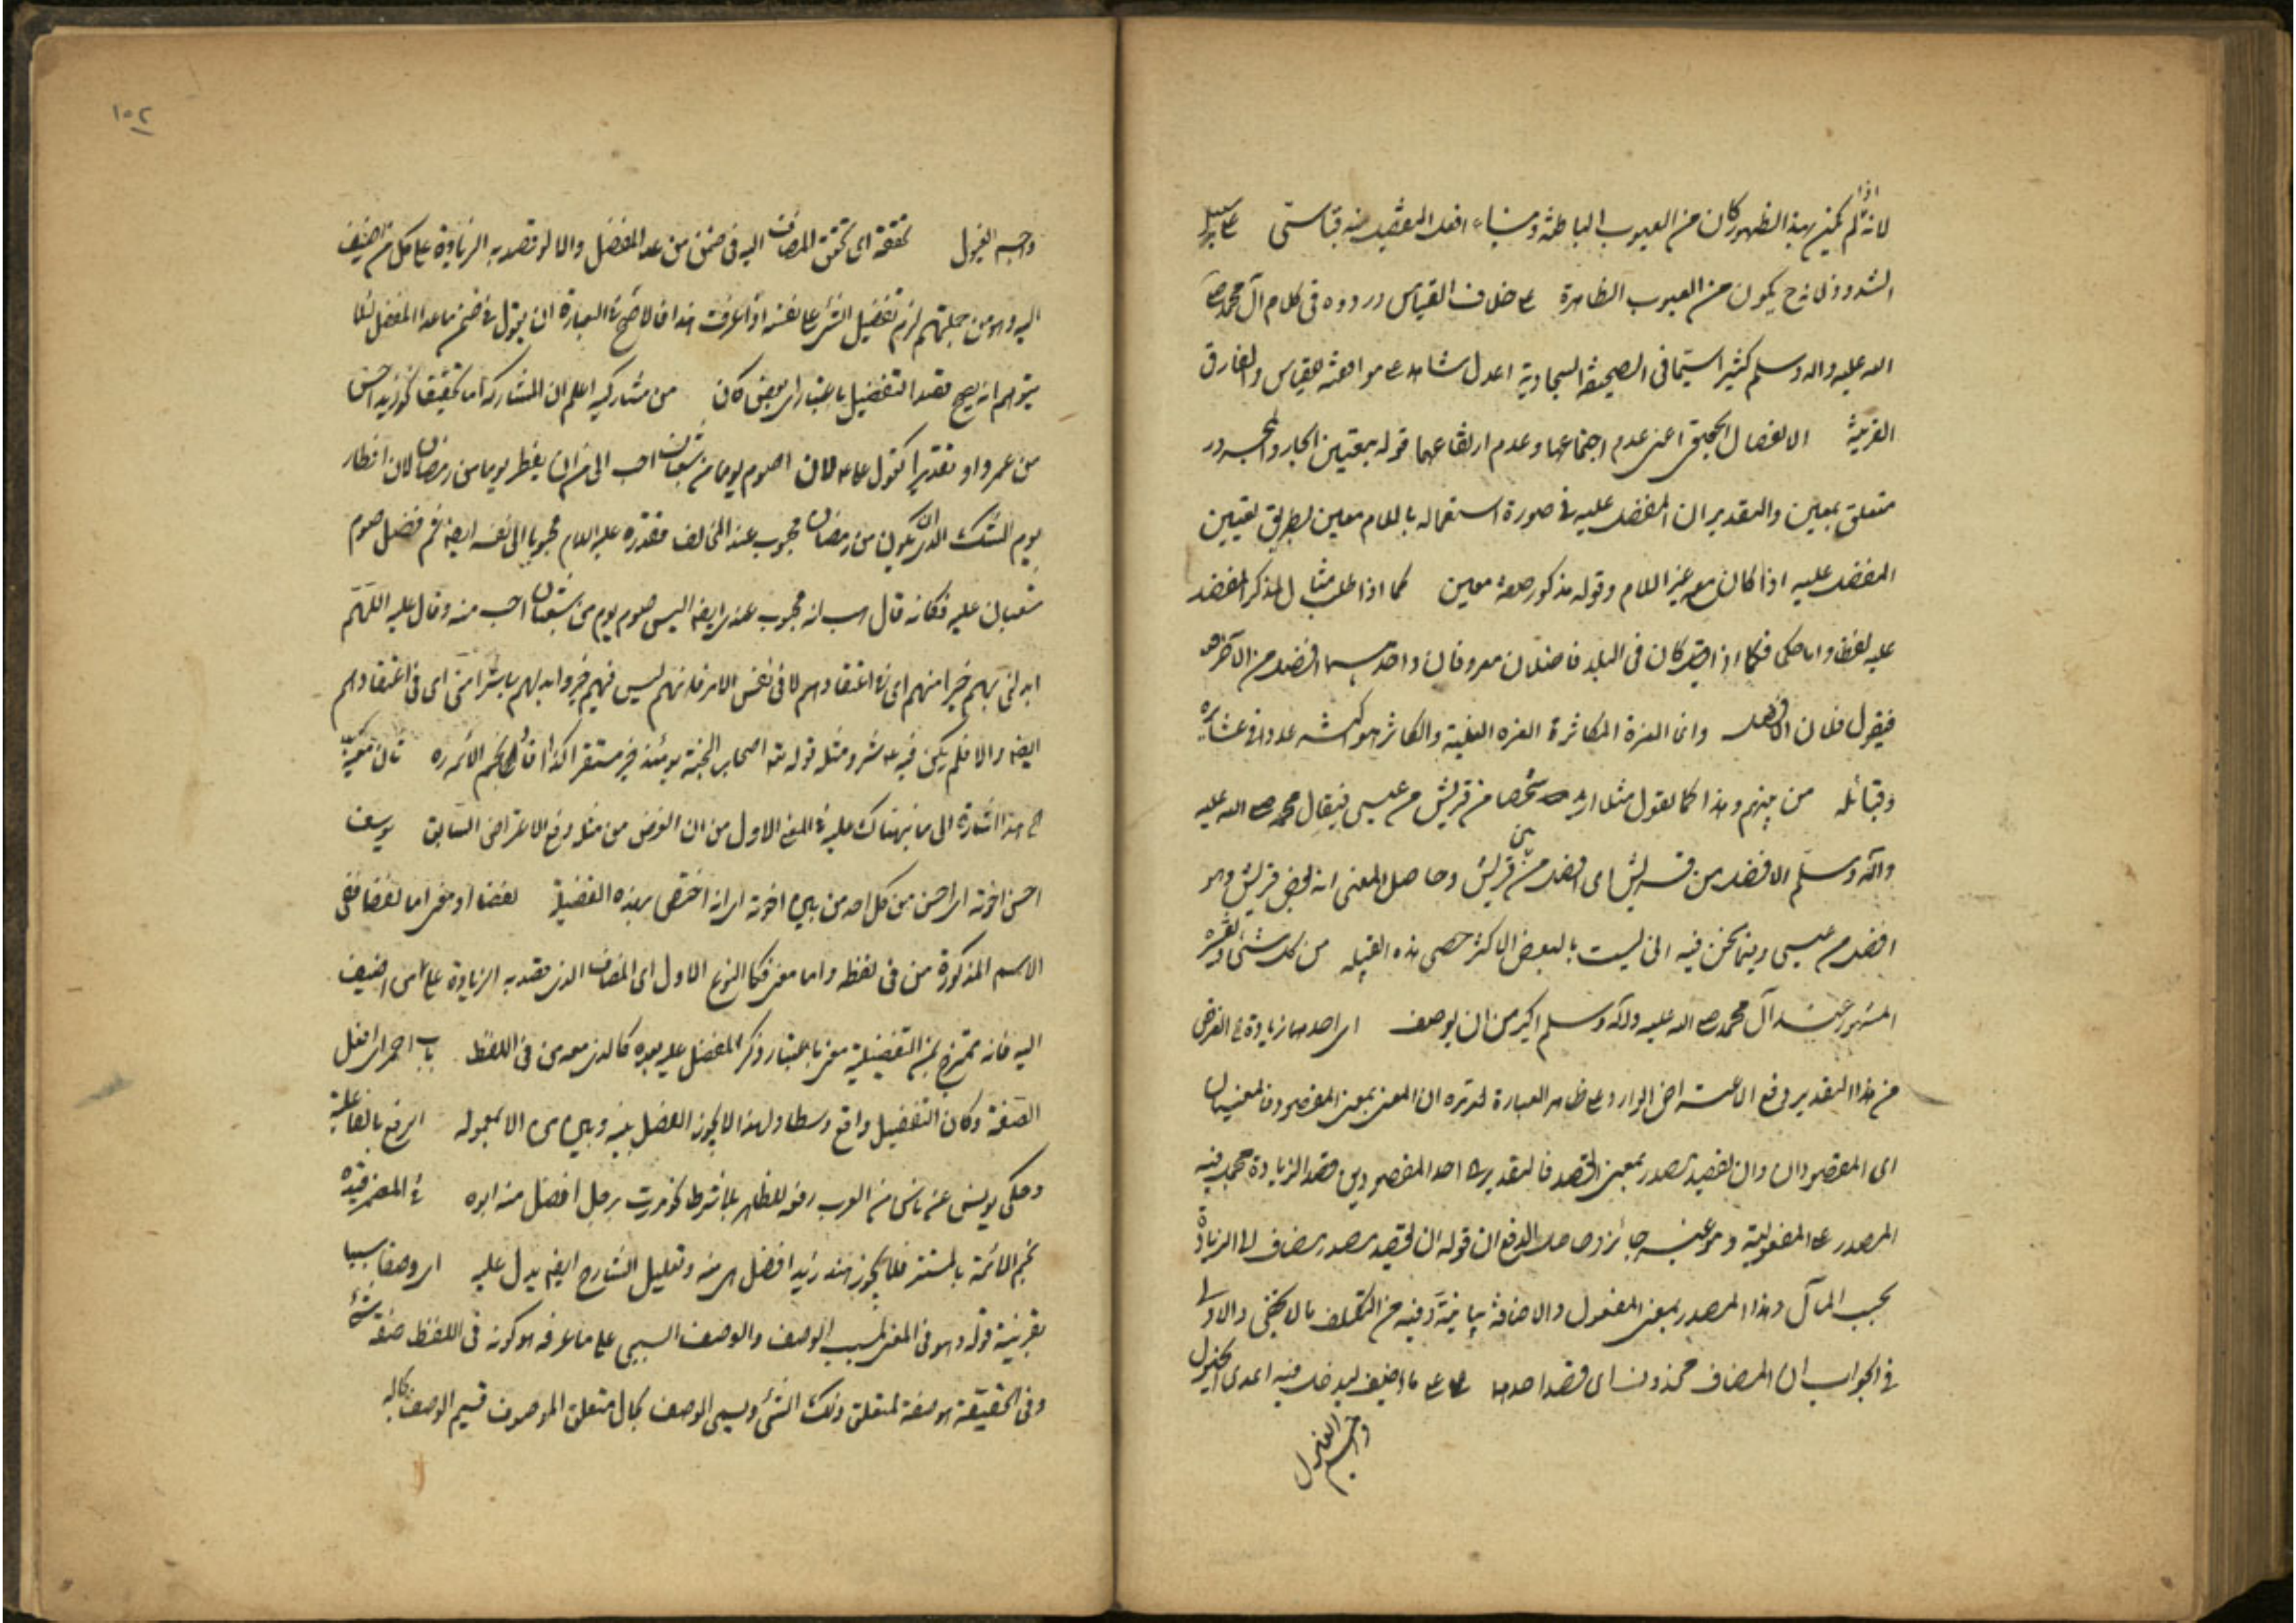 لانه اذا لم يكن بهذا الظهور كان من العيوب الباطنة وبناء افعل التفضيل منه قياسي على سبيل
الشذوذ لانه ح يكون من العيوب الظاهرة على خلاف القياس وروده في كلام آل محمد صلى
الله عليه واله وسلم كثير اسيما في الصحيفة السجادية اعدل شاهد على موافقته للقياس والفارق
القرينة الانفصال الحقيقي اعنى عدم اجتماعهما وعدم ارتفاعهما قوله بمعين الجار والمجرور
متعلق بمعين والتقدير ان المفضل عليه في صورة استعماله باللام معين بطريق تعيين
المفضل عليه اذا كان مع غير اللام وقوله مذكور صفة معين كما اذا طلب مثال لمذكر المفضل
عليه لفظا واما حكما فكما اذا كان في البلد فاضلان معروفان واحدهما افضل من الآخر
فيقول فلان الافضل وانما العزة للكاثر العزه الغلبة والكاثر هو كثير عدد عشائره
وقبائله من بينهم وهذا كما تقول مثلا اريد شخصا من قريش من عيسى فيقال محمد صلى الله عليه
وآله وسلم الافضل من قريش اى افضل من بين قريش وحاصل المعنى انه بعض قريش وهو
افضل من عيسى وفيما نحن فيه اى لست بالبعض الاكثر حصى هذه القبيله من كل شئ وتفسيره
المشهور عند آل محمد صلى الله عليه واله وسلم اكبر من ان يوصف اى احدهما زيادة في الغرض
من هذا التقدير دفع الاعتراض الوارد على ظاهر العبارة لتوهم ان المعنى بمعنى المقصود فالمعنيان
اى المقصودان وان يقصد مصدر بمعنى القصد فالتقدير احد المقصودين قصد الزيادة محمد فيه
المصدر على المفعولية وهو غير جائز وحاصل الدفع ان قوله ان يقصد مصدر مضاف الى الزيادة
بحسب المآل وهذا المصدر بمعنى المفعول والاضافة بيانية وفيه من التكلف ما لا يخفى والاولى
في الجواب ان المضاف محذوف اى قصد احدهما على ما اضيف ليدخل فيه اعدى الخيول
وجسم الغيول
١٠٢
وجسم الغيول تحققه اى تحقق المضاف اليه في ضمن من عدا المفضل والا لو قصد به الزيادة على كل من اضيف
اليه وهو من جملتهم لزم تفضيل الشئ على نفسه اذا عرفت هذا فالاصح في العبارة ان يقول في ضمن ما عدا المفضل لئلا
يتوهم انه يصح قصد التفضيل باعتبار اى بعض كان من مشاركيه اعلم ان المشاركة اما تحقيقا كزيد احسن
من عمرو او تقديرا كقول على ع لان اصوم يوما من شعبان احب الى من ان افطر يوما من رمضان لان افطار
يوم الشك الذى يكون من رمضان محبوب عند المخالف فقدره عليه السلام محبوبا الى نفسه ايضا ثم فضل صوم
شعبان عليه فكانه قال هب انه محبوب عندى ايضا اليس صوم يوم من شعبان احب منه وقال عليه اللهم
ابدلنى بهم خيرا منهم اى في اعتقادهم لا في نفس الامر فانه ليس فيهم خير وابدلهم بى شرا منى اى في اعتقادهم
ايضا والا فلم يكن فيه ع شر ومثله قوله تع اصحاب الجنة يومئذ خير مستقرا كذا قال نجم الائمه ره
في هذا اشارة الى ما نبهناك عليه في المعنى الاول من ان الغرض من مثله دفع الاعتراض السابق يوسف
احسن اخوته اى احسن من كل احد من بين اخوته اى انه اختص بهذه الفضيلة لفظا او معنى اما لفظا ففي
الاسم المذكورة من في لفظه واما معنى فكالنوع الاول اى المضاف الذى قصد به الزيادة على من اضيف
اليه فانه ممتزج بمن التفضيلية معنى باعتبار ذكر المفضل عليه بعده كالذى معه من في اللفظ باب احمر اى افعل
الصفة وكان التفضيل واقع وسطا ولهذا لا يجوز الفصل بينه وبين من الا بمعموله اى رفع بالفاعلية
وحكى يونس عن ناس من العرب رفعه للظاهر بلا شرط نحو مررت برجل افضل منه ابوه في المضمر قيده
نجم الائمة بالمستتر فلا يجوز هند زيد افضل هى منه وتعليل الشارح ايضا يدل عليه اى وصفا سببيا
بقرينة قوله وهو في المعنى لمسبب الوصف والوصف السببى على ما عرفه هو كونه في اللفظ صفة شئ
وفي الحقيقة هو صفة لمتعلق ذلك الشئ ويسمى الوصف بحال متعلق الموصوف قسيم الوصف بحاله